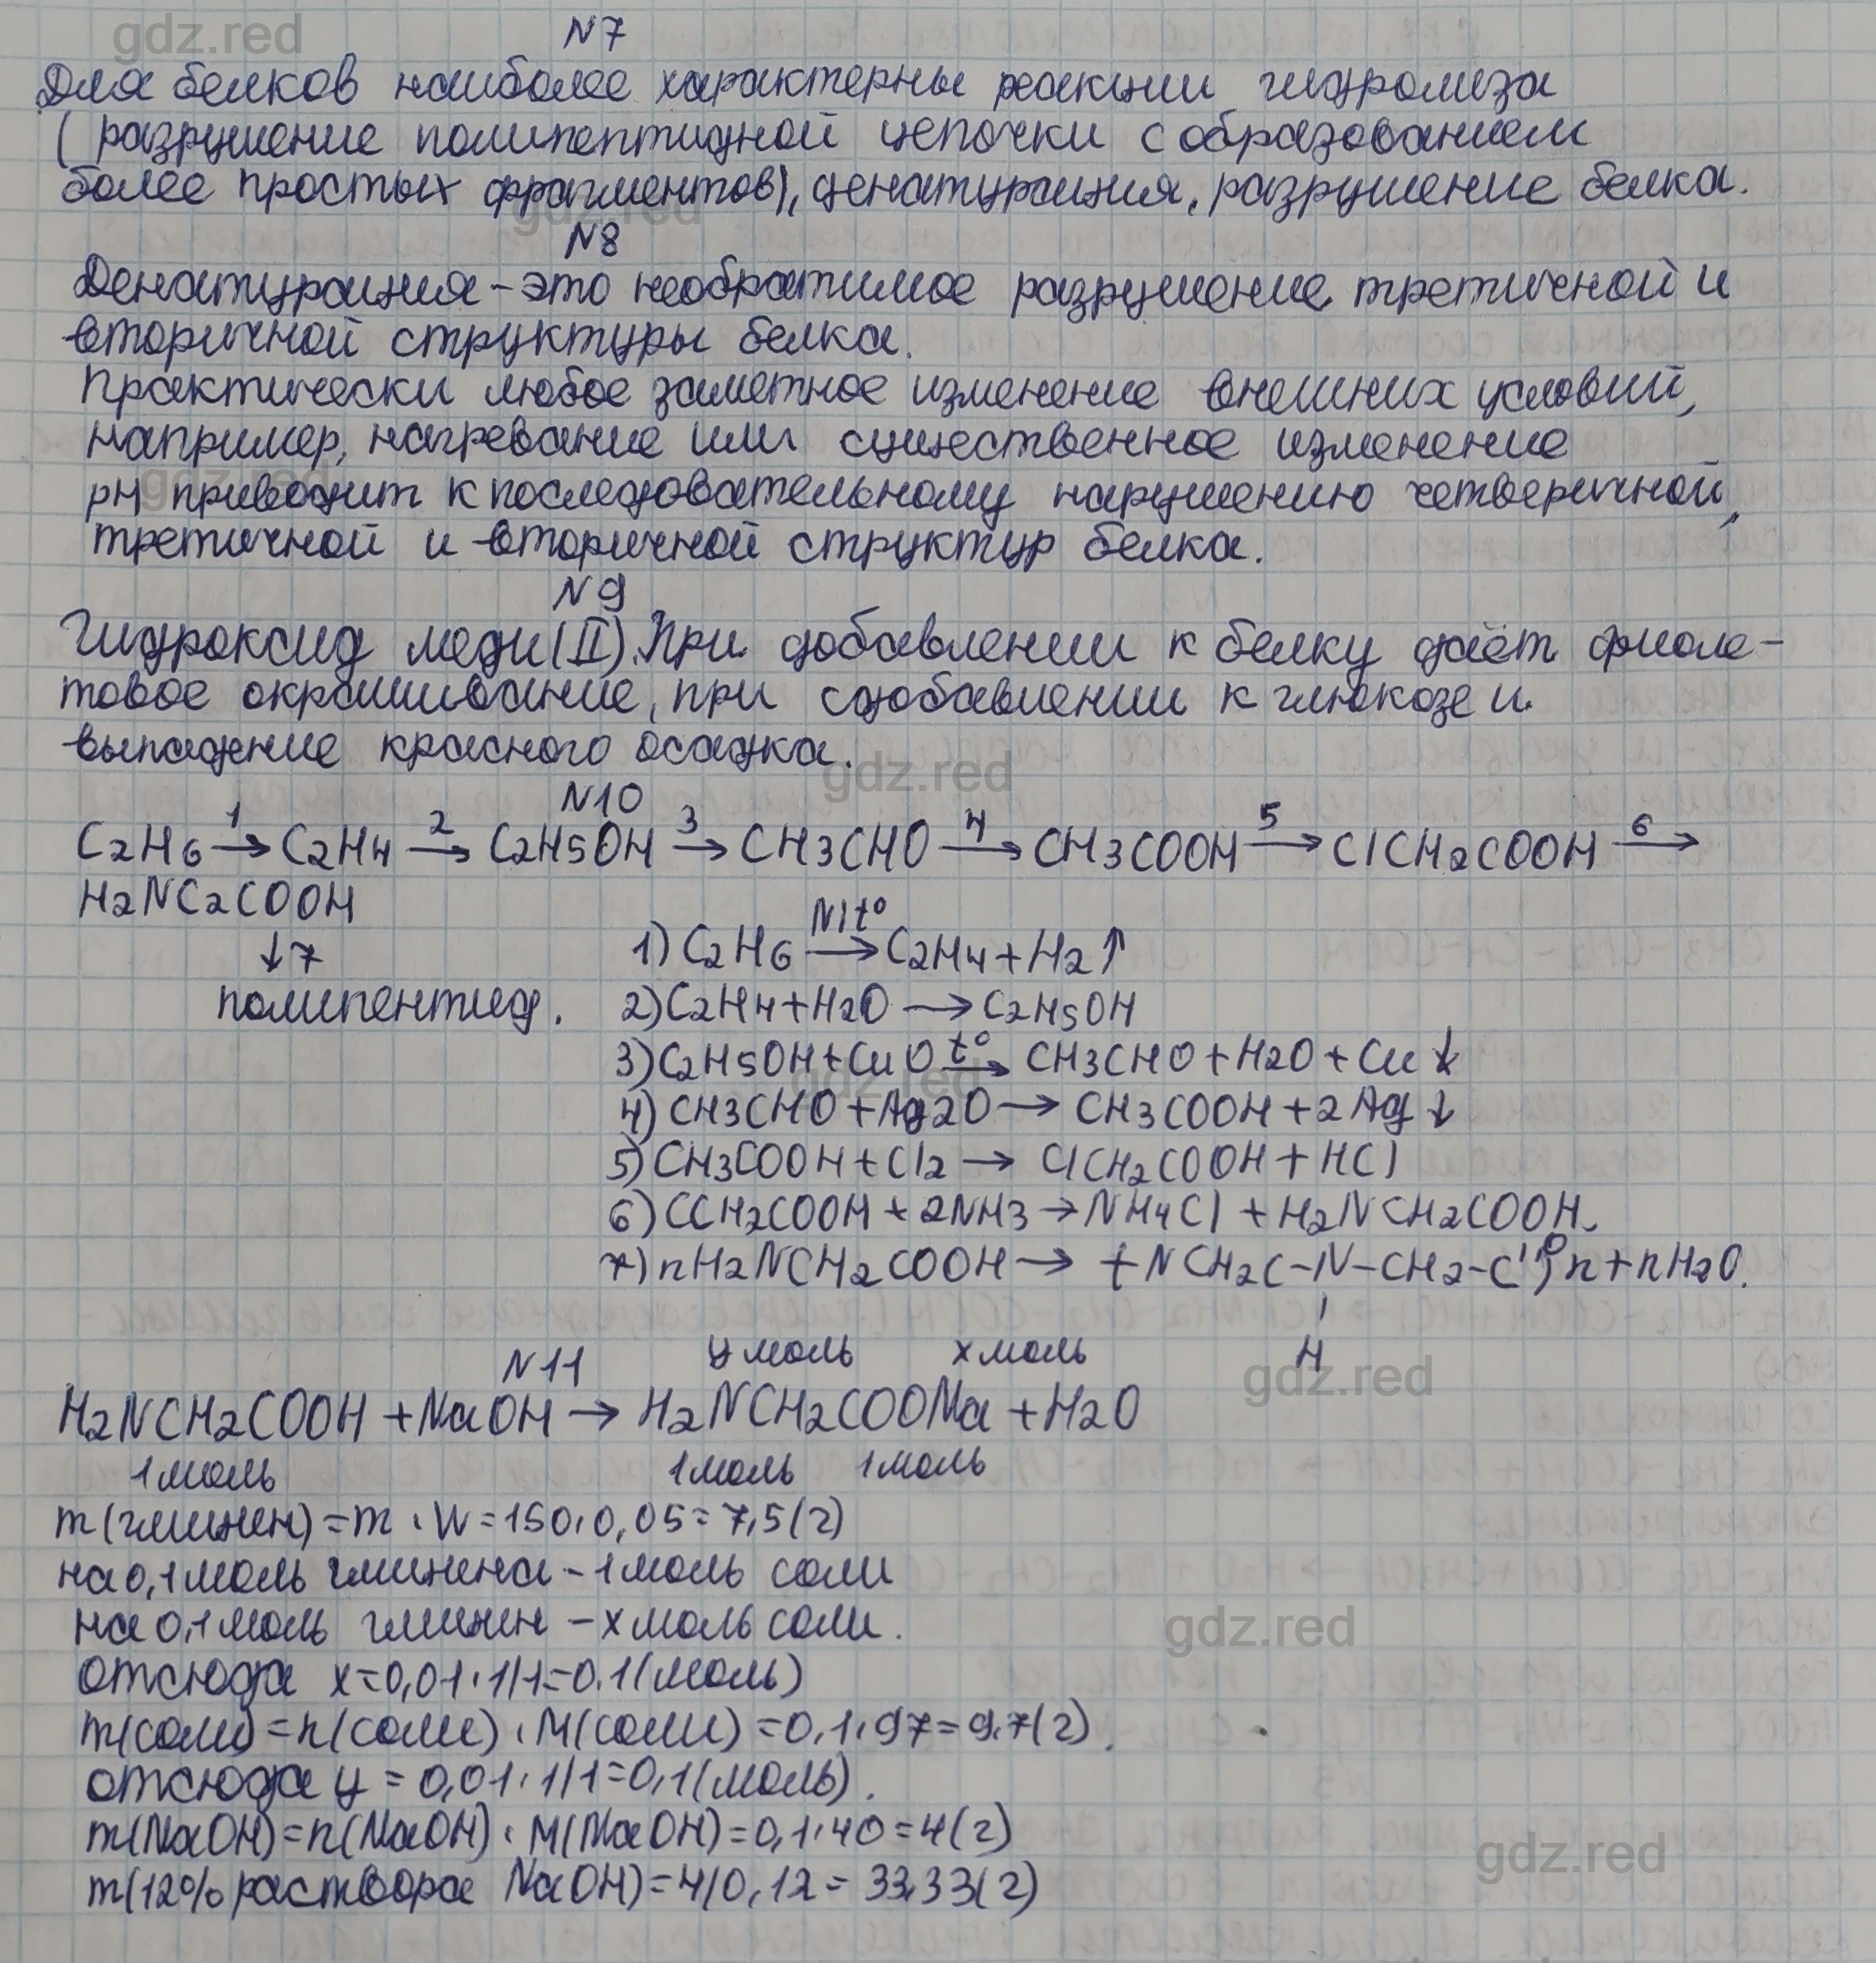 gdz.red
N7
Для белков наиболее характерны реакции гидролиза
(разрушение полипептидной цепочки с образованием
более простых фрагментов), денатурация, разрушение белка.
gdz.red
N8
Денатурация - это необратимое разрушение третичной и
вторичной структуры белка.
Практически любое заметное изменение внешних условий,
например, нагревание или существенное изменение
gdz.red
pH приводит к последовательному нарушению четверичной,
третичной и вторичной структур белка.
N9
Гидроксид меди (II). При добавлении к белку даёт фиоле-
товое окрашивание, при сдобавлении к глюкозе и
выпадение красного осадка.
gdz.red
N10
C2H6 1→ C2H4 2→ C2H5OH 3→ CH3CHO 4→ CH3COOH 5→ ClCH2COOH 6→
H2NC2COOH
↓7
полипентид.
1) C2H6 Nit°→ C2H4 + H2↑
2) C2H4 + H2O → C2H5OH
3) C2H5OH + CuO t°→ CH3CHO + H2O + Cu↓
gdz.red
4) CH3CHO + Ag2O → CH3COOH + 2Ag↓
5) CH3COOH + Cl2 → ClCH2COOH + HCl
6) CCH2COOH + 2NH3 → NH4Cl + H2NCH2COOH
7) nH2NCH2COOH → (-NCH2C-N-CH2-C"O)n + nH2O.
H
gdz.red
N11 y моль x моль
H2NCH2COOH + NaOH → H2NCH2COONa + H2O
1 моль 1 моль 1 моль
m(глинен) = m · W = 150 · 0,05 = 7,5 (г)
на 0,1 моль глинена - 1 моль соли
на 0,1 моль глинен - x моль соли.
gdz.red
отсюда x = 0,01 · 1/1 = 0.1 (моль)
m(соли) = n(соли) · M(соли) = 0,1 · 97 = 9,7 (г).
отсюда y = 0,01 · 1/1 = 0,1 (моль).
m(NaOH) = n(NaOH) · M(NaOH) = 0,1 · 40 = 4 (г)
gdz.red
m(12% раствора NaOH) = 4/0,12 = 33,33 (г)